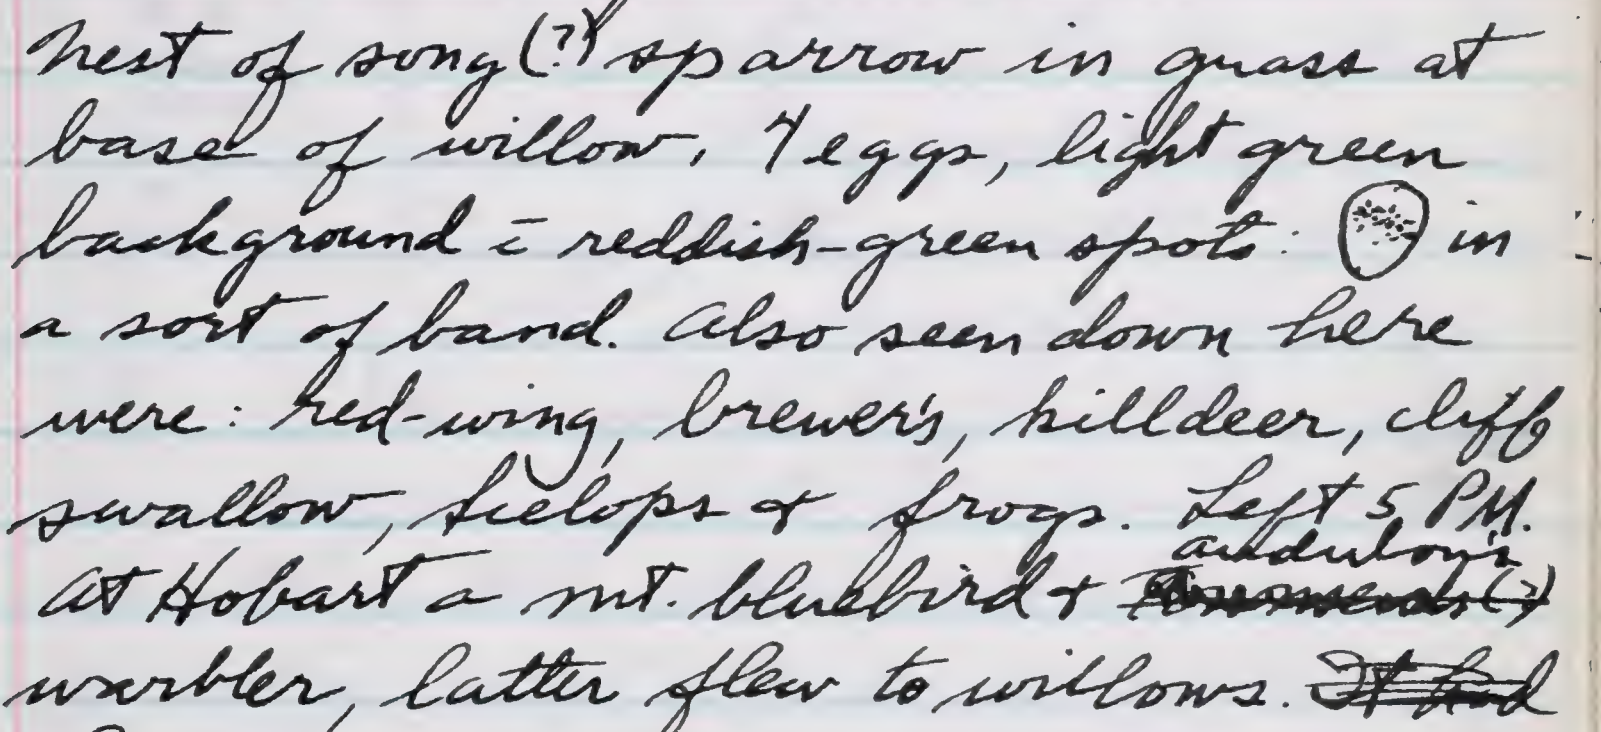 nest of song (?) sparrow in grass at
base of willow. 4 eggs, light green
background c̄ reddish-green spots: in
a sort of band. Also seen down here
were: red-wing, brewer's, killdeer, cliff
swallow, scelops & frogs. Left 5 PM.
At Hobart a mt. bluebird & audubon's
warbler, latter flew to willows. It had